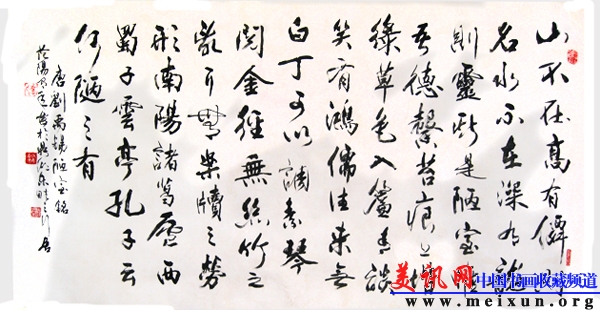 山不在高有僊
名水不在深有龍
則靈斯是陋室惟
吾德馨苔痕上堦
綠草色入簾青談
笑有鴻儒往來無
白丁可以調素琴
閱金經無絲竹之
亂耳無案牘之勞
形南陽諸葛廬西
蜀子雲亭孔子云
何陋之有
唐劉禹錫陋室銘
美讯网 中国书画收藏频道
www.meixun.org